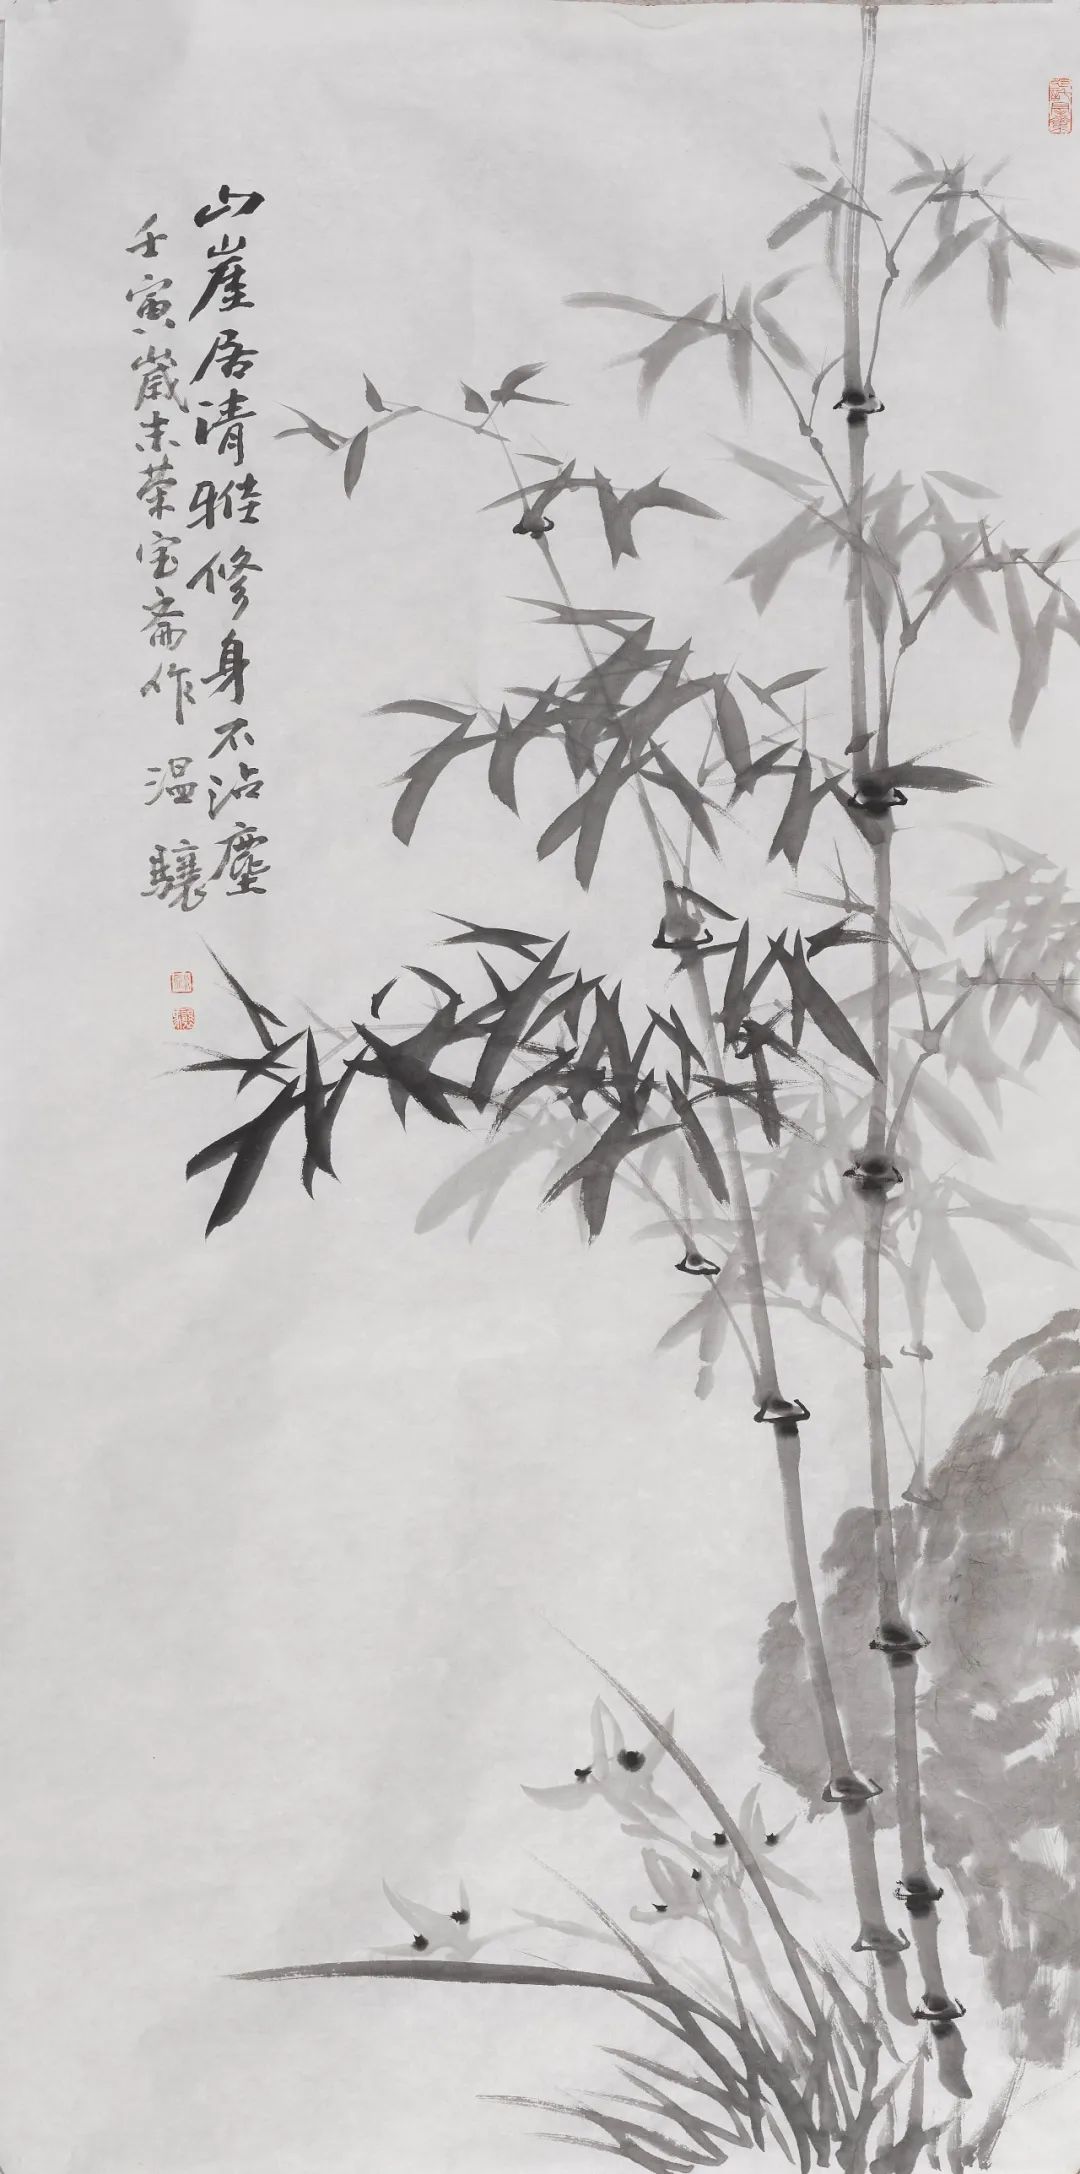 山崖居清雅修身不沾塵
壬寅歲末荣宝斋作 温驤